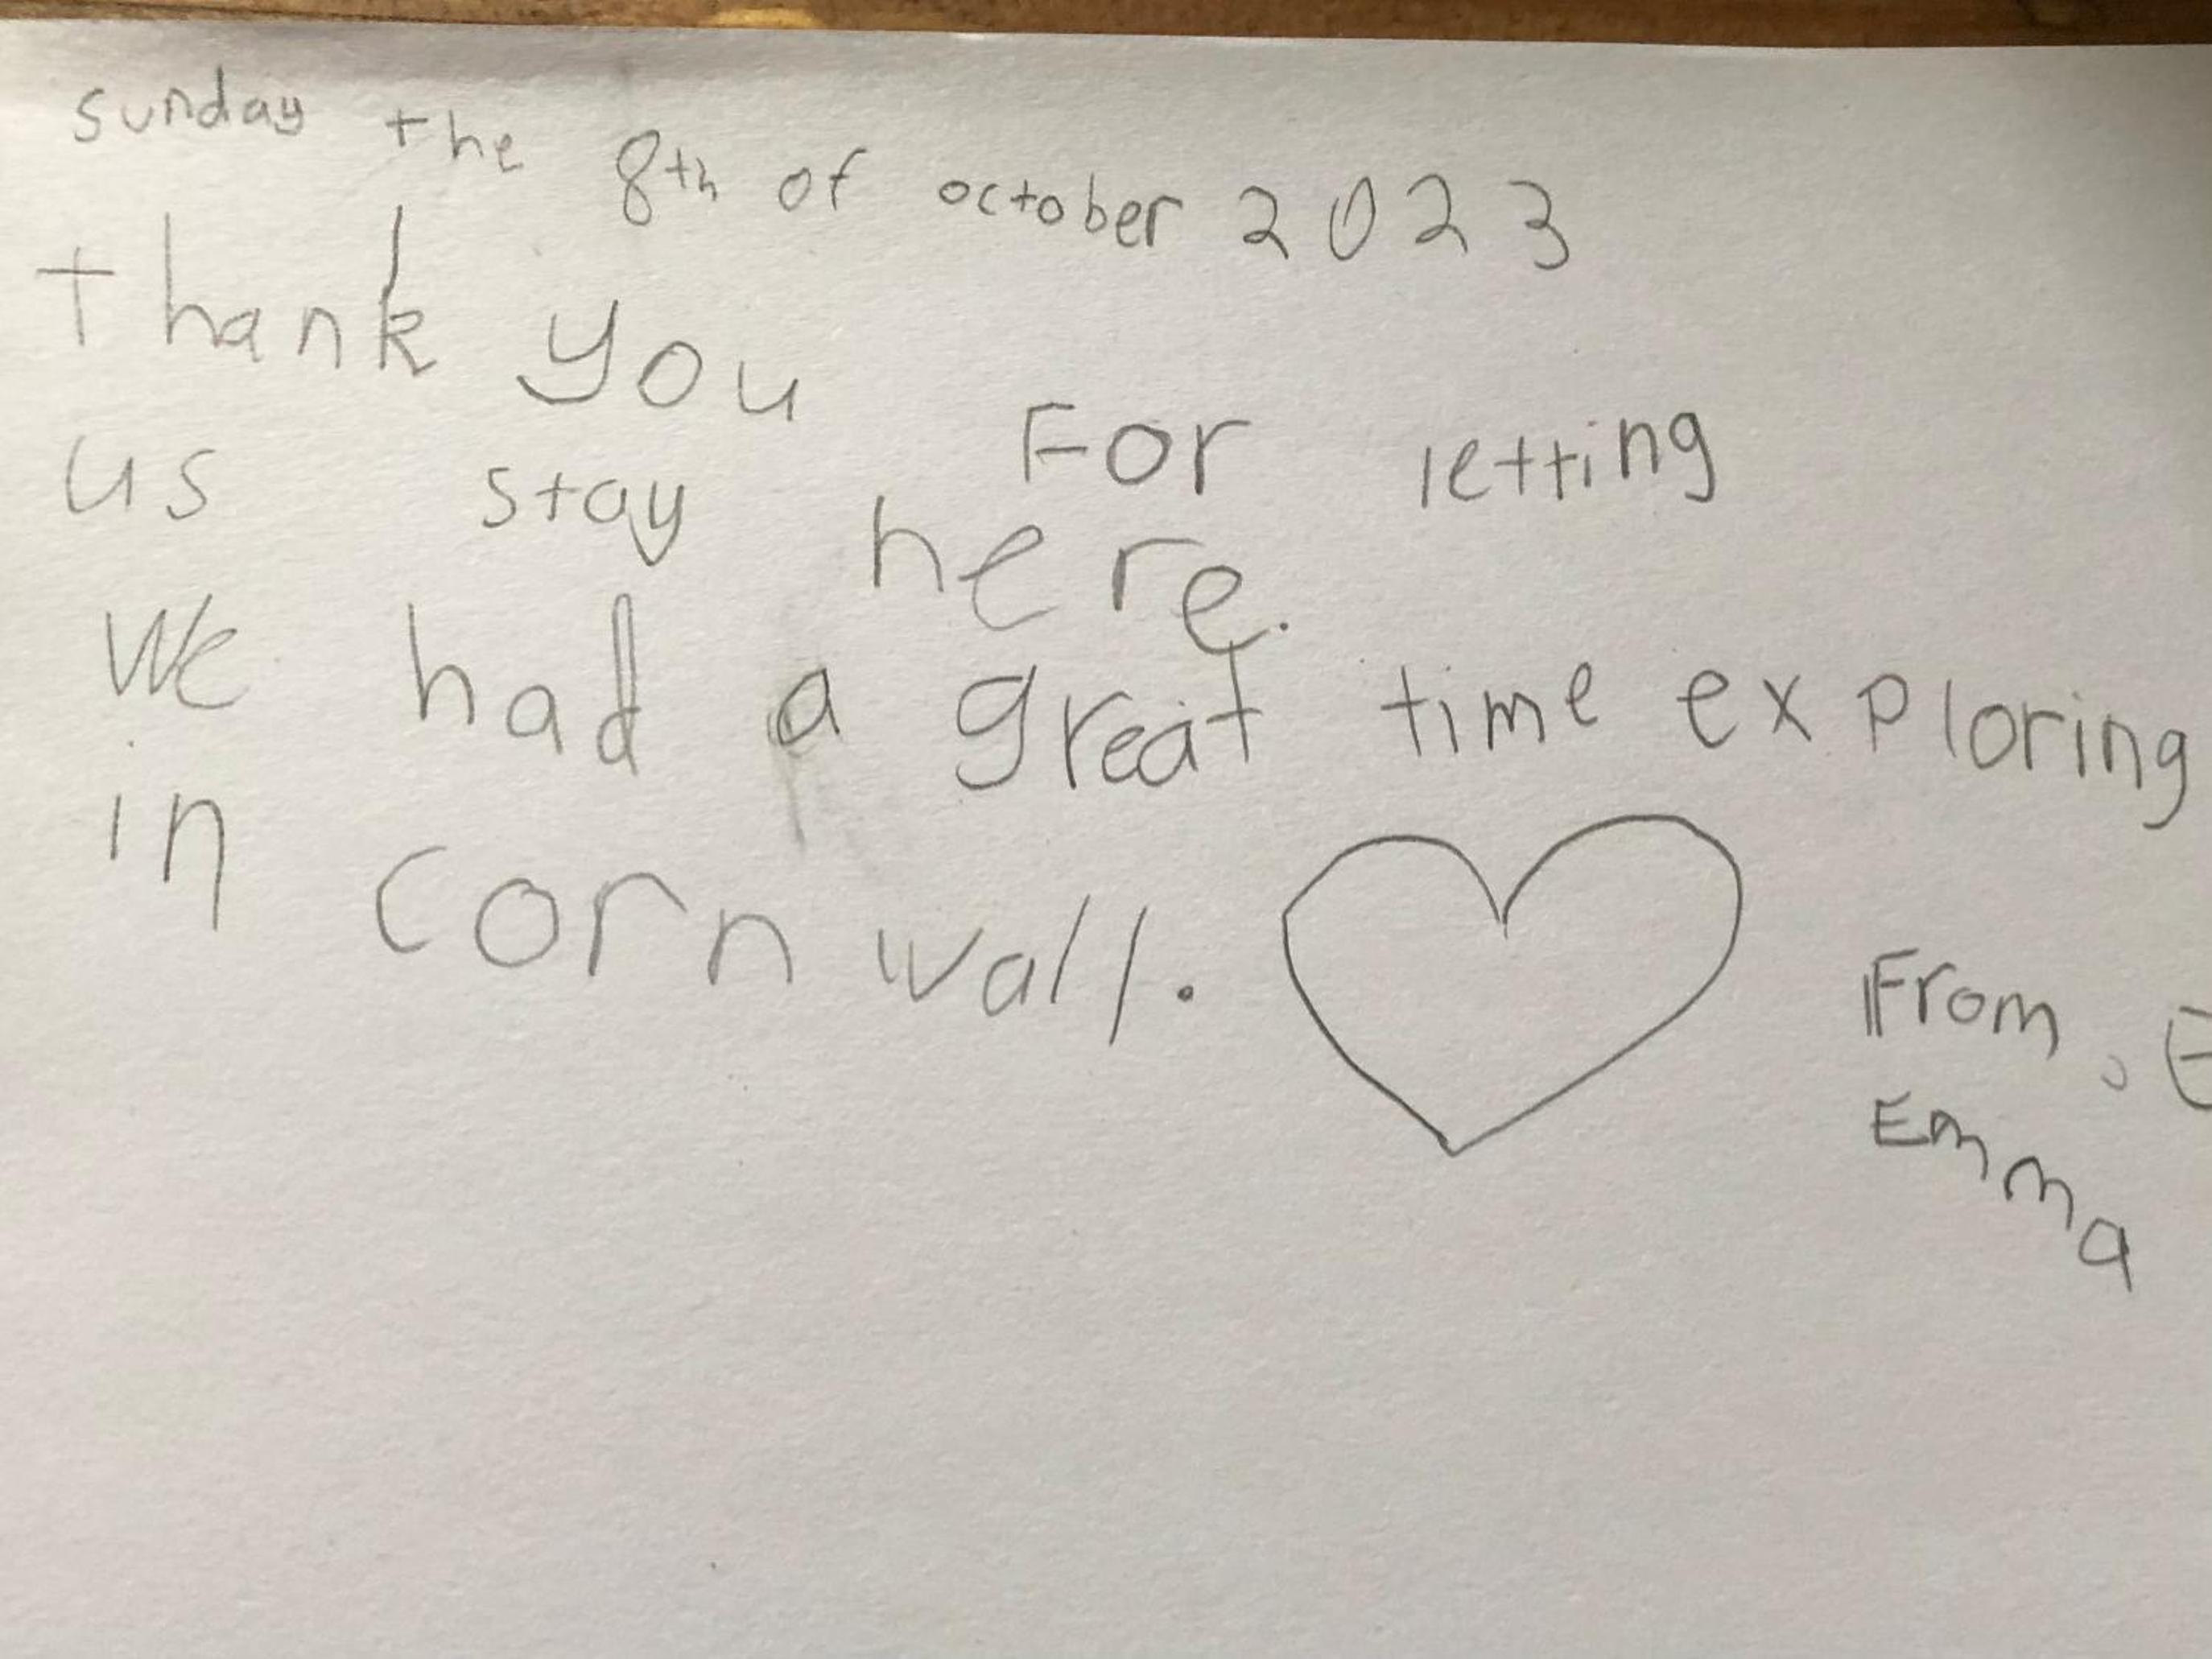 sunday the 8th of october 2023
thank you For letting
us stay here.
We had a great time exploring
in cornwall.
From
Emma